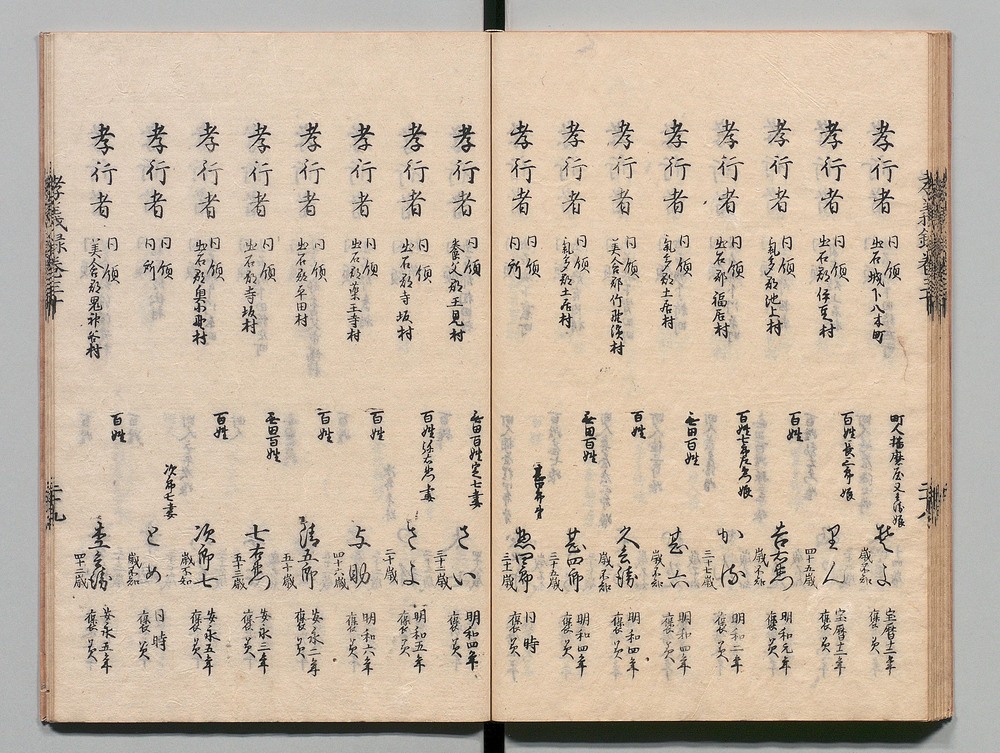 孝義録巻三十
孝行者
同領
出石城下八木町
町人播磨屋又兵衛娘
歳不知
宝暦十二年
褒美
孝行者
同領
出石郡伊豆村
百姓長三郎娘
里ん
四十五歳
宝暦十二年
褒美
孝行者
同領
気多郡池上村
百姓
吉右衛門
歳不知
明和元年
褒美
孝行者
同領
出石郡福居村
百姓七郎左衛門娘
三十七歳
明和二年
褒美
孝行者
同領
気多郡土居村
無田百姓
甚六
歳不知
明和四年
褒美
孝行者
同領
美含郡竹野濱村
百姓
久兵衛
歳不知
明和四年
褒美
孝行者
同領
気多郡土居村
無田百姓
甚四郎
三十五歳
明和四年
褒美
孝行者
同領
同所
甚四郎弟
惣四郎
三十二歳
同時
褒美
二十八
孝行者
同領
養父郡玉見村
無田百姓定七妻
さい
三十二歳
明和四年
褒美
孝行者
同領
出石郡寺坂村
百姓弥右衛門妻
さよ
三十歳
明和五年
褒美
孝行者
同領
出石郡薬王寺村
百姓
与助
四十六歳
明和六年
褒美
孝行者
同領
出石郡平田村
百姓
清五郎
五十歳
安永二年
褒美
孝行者
同領
出石郡寺坂村
無田百姓
七右衛門
五十二歳
安永三年
褒美
孝行者
同領
出石郡奥小野村
百姓
次郎七
歳不知
安永五年
褒美
孝行者
同領
同所
次郎七妻
とめ
歳不知
同時
褒美
孝行者
同領
美含郡鬼神谷村
百姓
四十二歳
安永五年
褒美
孝義録巻三十
二十九